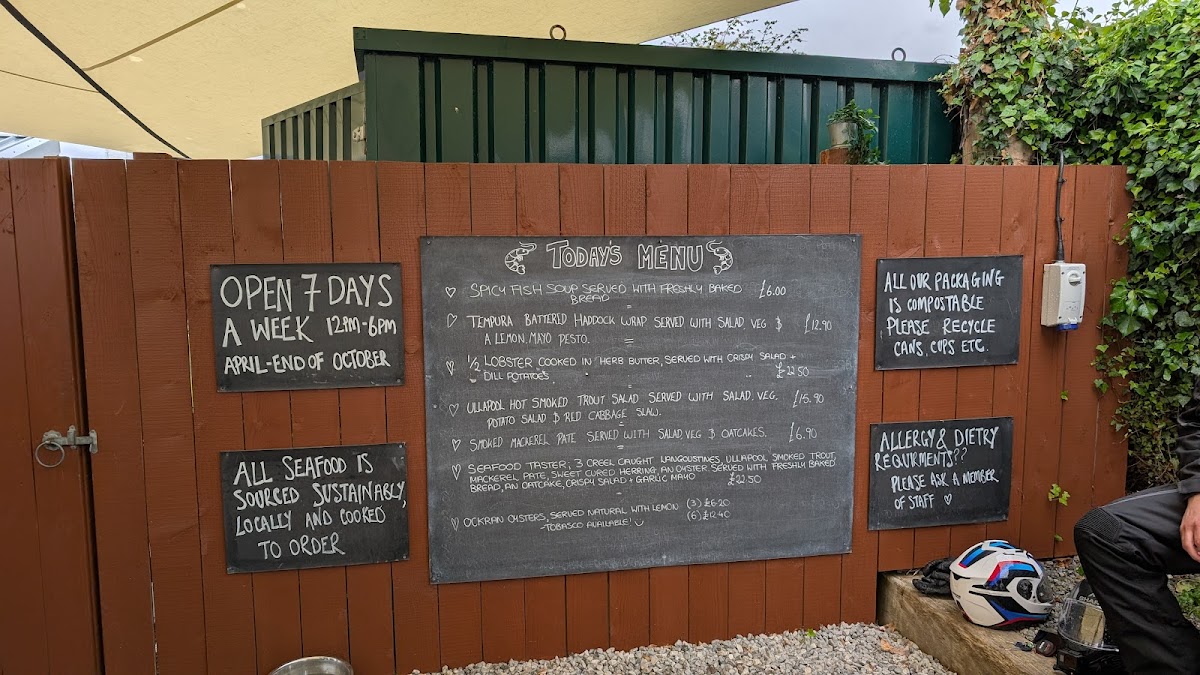 OPEN 7 DAYS
A WEEK 12PM-6PM
APRIL-END OF OCTOBER
ALL SEAFOOD IS
SOURCED SUSTAINABLY,
LOCALLY AND COOKED
TO ORDER
TODAY'S MENU
SPICY FISH SOUP SERVED WITH FRESHLY BAKED £6.00
BREAD
TEMPURA BATTERED HADDOCK WRAP SERVED WITH SALAD, VEG & £12.90
A LEMON MAYO PESTO.
1/2 LOBSTER COOKED IN HERB BUTTER, SERVED WITH CRISPY SALAD +
DILL POTATOES. £22.50
ULLAPOOL HOT SMOKED TROUT SALAD SERVED WITH SALAD, VEG. £15.90
POTATO SALAD & RED CABBAGE SLAW.
SMOKED MACKEREL PATE SERVED WITH SALAD, VEG & OATCAKES. £6.90
SEAFOOD TASTER; 3 CREEL CAUGHT LANGOUSTINES, ULLAPOOL SMOKED TROUT,
MACKEREL PATE, SWEET CURED HERRING, AN OYSTER. SERVED WITH FRESHLY BAKED
BREAD, AN OATCAKE, CRISPY SALAD + GARLIC MAYO £22.50
OCKRAN OYSTERS, SERVED NATURAL WITH LEMON (3) £6.20
-TOBASCO AVAILABLE! (6) £12.40
ALL OUR PACKAGING
IS COMPOSTABLE
PLEASE RECYCLE
CANS, CUPS ETC.
ALLERGY & DIETRY
REQUIRMENTS??
PLEASE ASK A MEMBER
OF STAFF